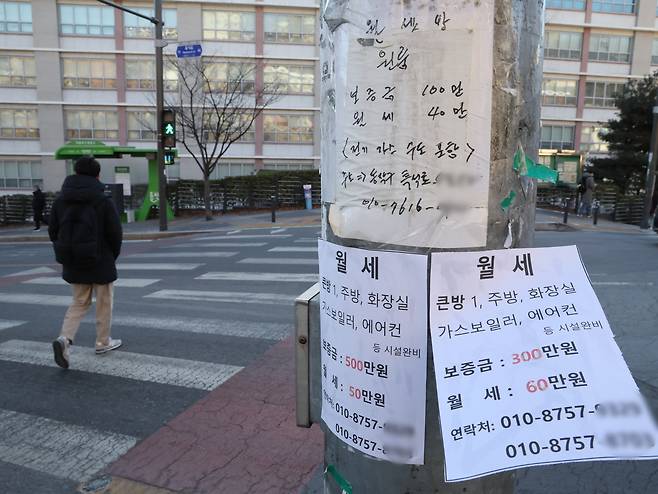 월세방
원룸
보증금 100만
월세 40만
(전기 가스 수도 포함)
010-7616-
월 세
큰방1, 주방, 화장실
가스보일러, 에어컨
등 시설완비
보증금 : 500만원
월 세 : 50만원
연락처: 010-8757-
010-8757-
월 세
큰방 1, 주방, 화장실
가스보일러, 에어컨
등 시설완비
보증금 : 300만원
월 세 : 60만원
연락처: 010-8757-
010-8757-